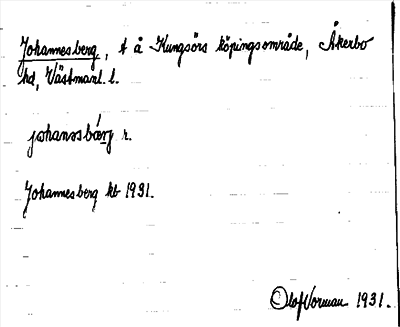 Johannesberg, t å Kungsörs köpingsområde, Åkerbo
hd, Västmanl. l.
johanəsbárj r.
Johannesberg kb 1931.
Olof Vorman 1931.